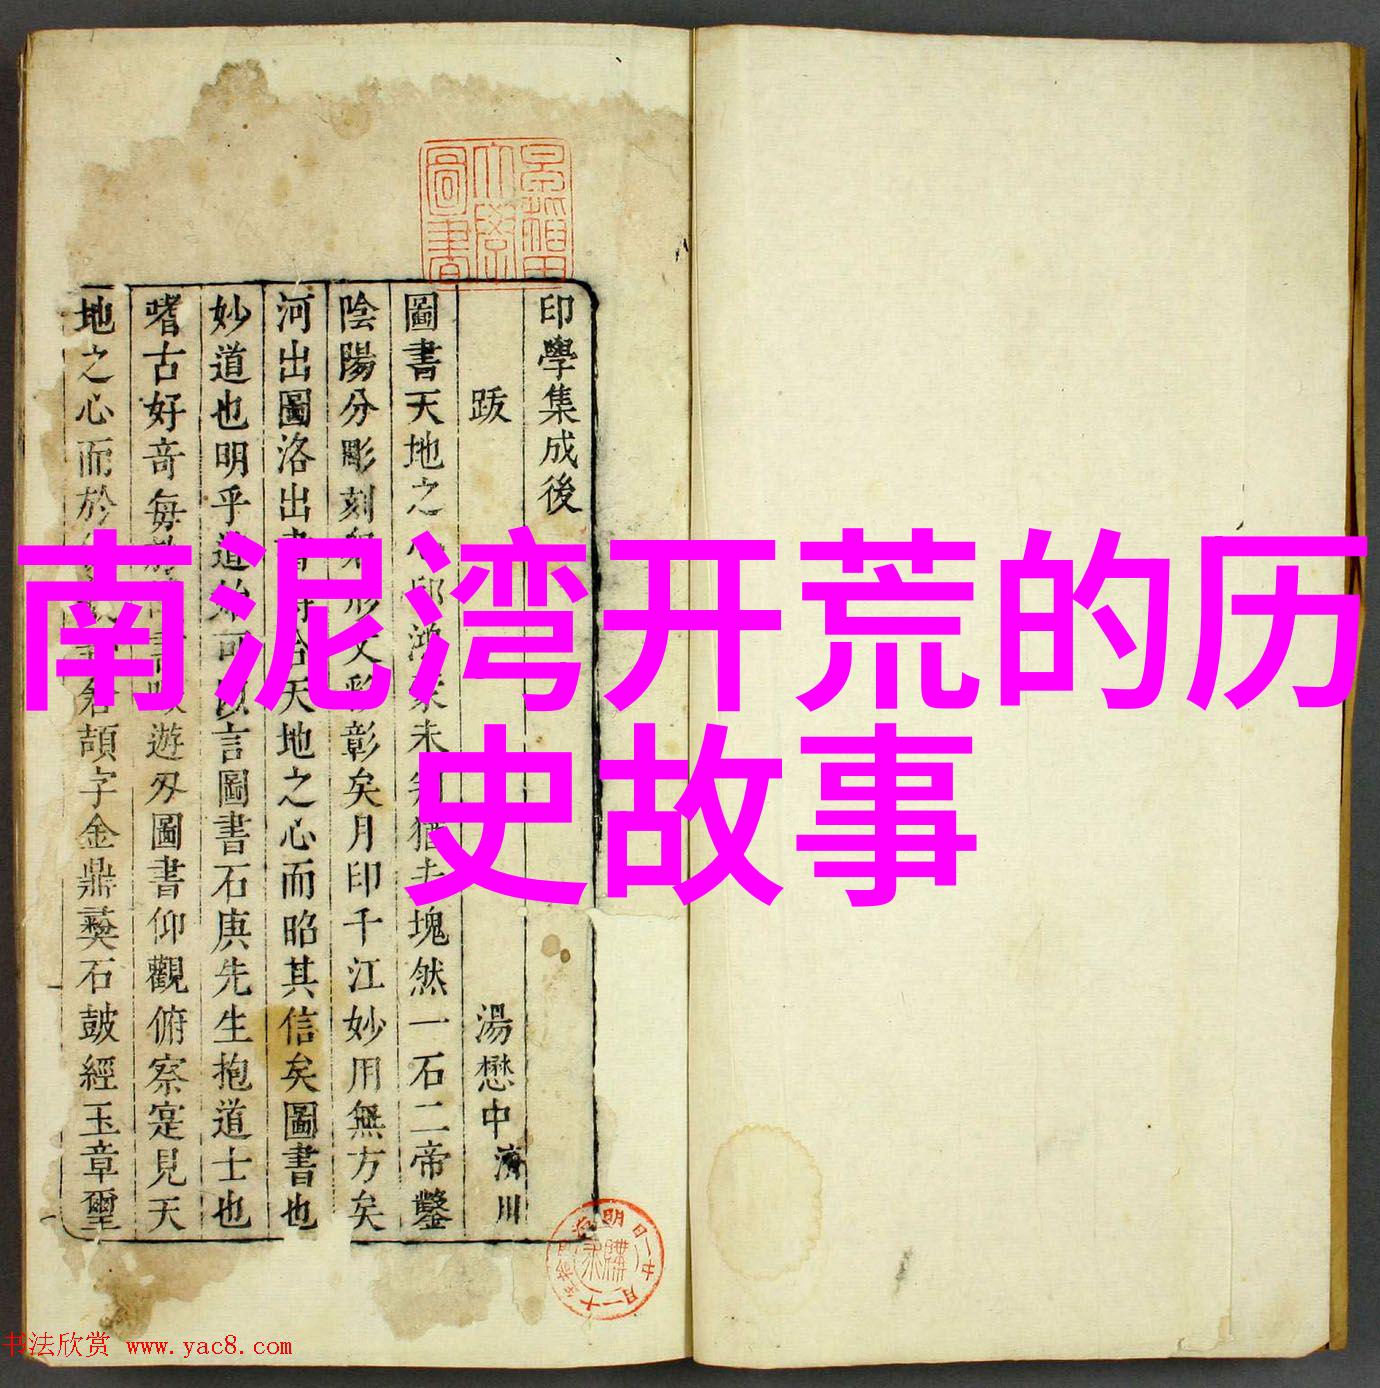 南泥湾开荒的历
史故事
圖書
印學集成後
跋 湯懋中 濟川
圖書天地之 未 猶 塊然一石二帝鑿
陰陽分彫刻 文 彰矣月印千江妙用無方矣
河出圖洛出書 天地之心而昭其信矣圖書也
妙道也明乎道始可以言圖書石庚先生抱道士也
嗜古好奇每 遊刃圖書仰觀俯察寔見天
地之心而於 倉頡字金鼎彝石鼓經玉章璽
明治 十一月廿一日
购求
书法欣赏 www.yac8.com